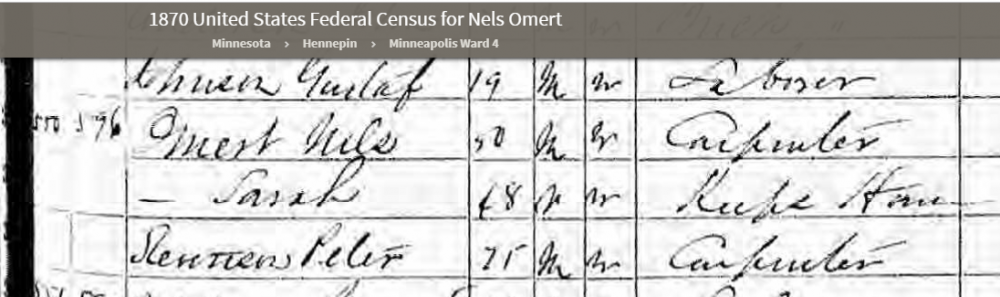 1870 United States Federal Census for Nels Omert
Minnesota › Hennepin › Minneapolis Ward 4
Gustaf 19 M W Laborer
596 Omert Nils 50 M W Carpenter
— Sarah 48 W Keeps House
Peter M W Carpenter